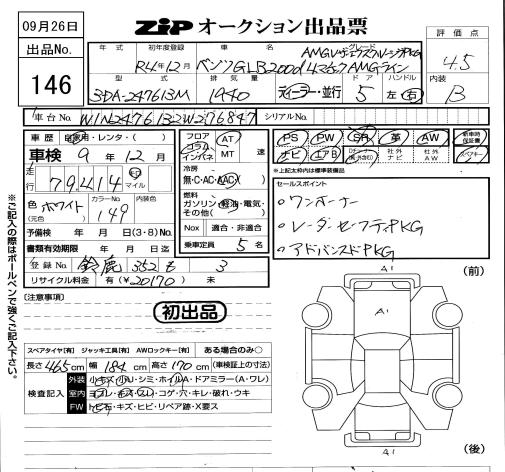 09月26日
ZIP オークション出品票
出品No.
146
年式 初年度登録 車名 グレード
R4年12月 ベンツGLB200d 4マチック AMGライン
AMGレザーエクスクルーシブPKG
評価点
4.5
内装
B
型式 排気量 ドア ハンドル
3DA-247613M 1940 ディーラー・並行 5 左・右
車台No. W1N2476132W276847 シリアルNo.
車歴 自家用・レンタ・( )
車検 9年12月
走行 79,414 km マイル
色 (元色) ホワイト カラーNo. 149 内装色
予備検 年 月 日(3・8)No.
書類有効期限 年 月 日迄
登録No. 鈴鹿 352 も 3
リサイクル料金 有(¥20170)無
フロア コラム インパネ AT MT 速
冷房 無・C・AC・AAC
燃料 ガソリン・軽油・電気・その他( )
Nox 適合・非適合
乗車定員 5名
PS PW SR 革 AW
ナビ エアB Dオーナー(県外含む) 社外ナビ 社外AW
新車時保証書
※上記太枠内は標準装備品
セールスポイント
・ワンオーナー
・レーダーセーフティPKG
・アドバンスドPKG
※ご記入の際はボールペンで強くご記入下さい。
(注意事項)
初出品
スペアタイヤ[有] ジャッキ工具[有] AWロックキー[有] ある場合のみ○
長さ 465cm 幅 184cm 高さ 170cm (車検証上の寸法)
検査記入
外装 小キズ・小U・シミ・ホイルA・ドアミラー(A・ワレ)
室内 ヨゴレ・キズ・スレ・コゲ・穴・キレ・破れ・ウキ
FW トビ石・キズ・ヒビ・リペア跡・X要ス
A1
(前)
A1
A1
(後)